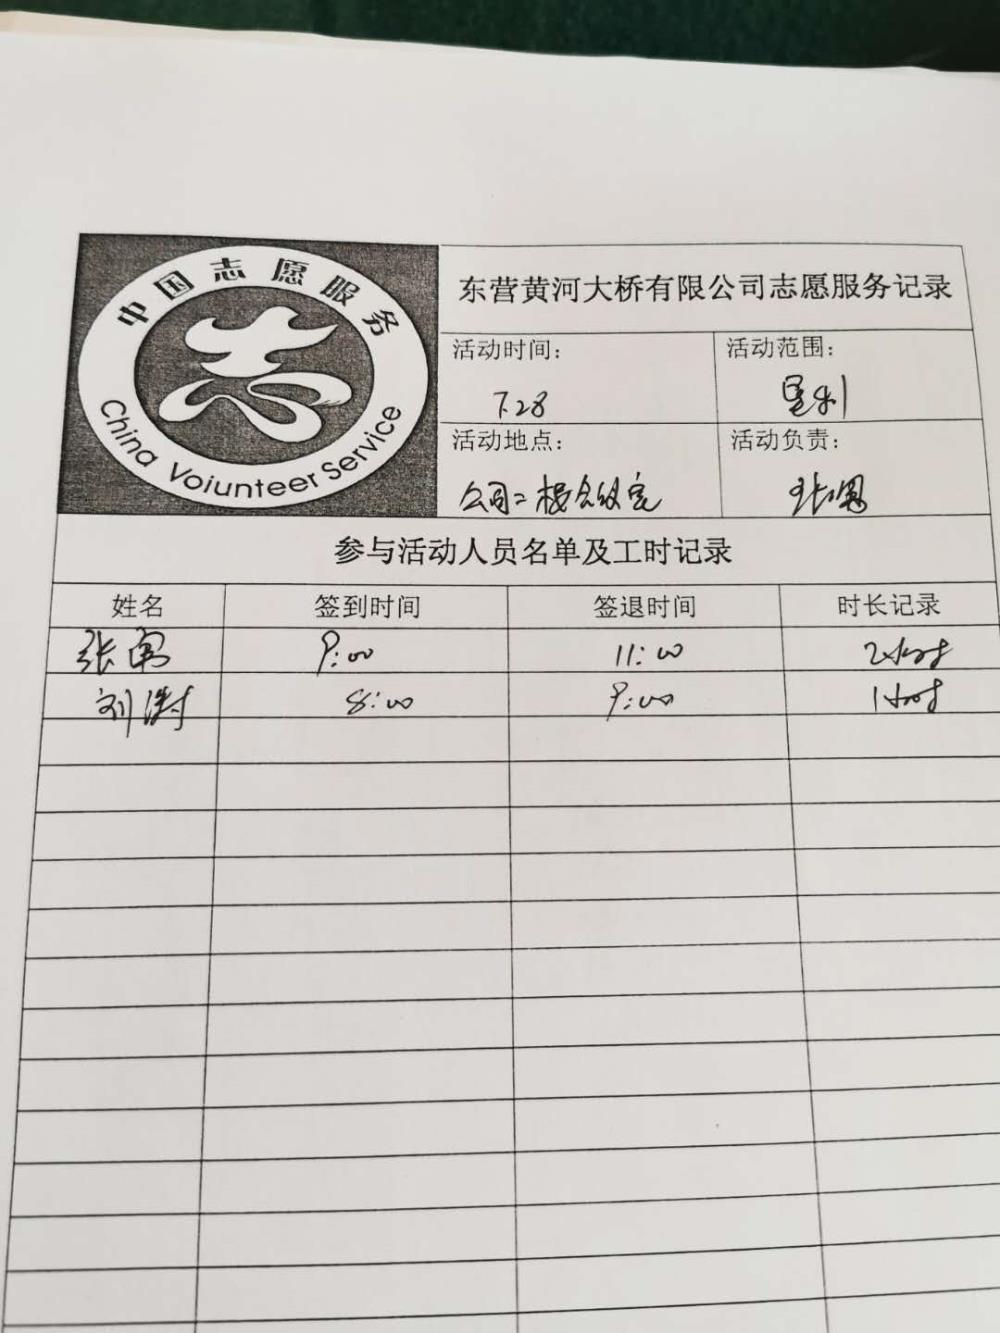 中国志愿服务
China Voiunteer Service
东营黄河大桥有限公司志愿服务记录
活动时间:
7.28
活动范围:
垦利
活动地点:
公司二楼会议室
活动负责:
参与活动人员名单及工时记录
姓名 签到时间 签退时间 时长记录
张 9:00 11:00 2小时
刘涛 8:00 9:00 1小时